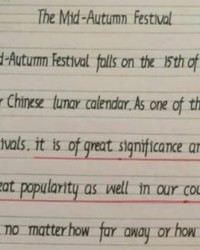 The Mid-Autumn Festival
d-Autumn Festival falls on the 15th of
Chinese lunar calendar. As one of th
ivals, it is of great significance an
eat popularity as well in our cou
no matter how far away or how